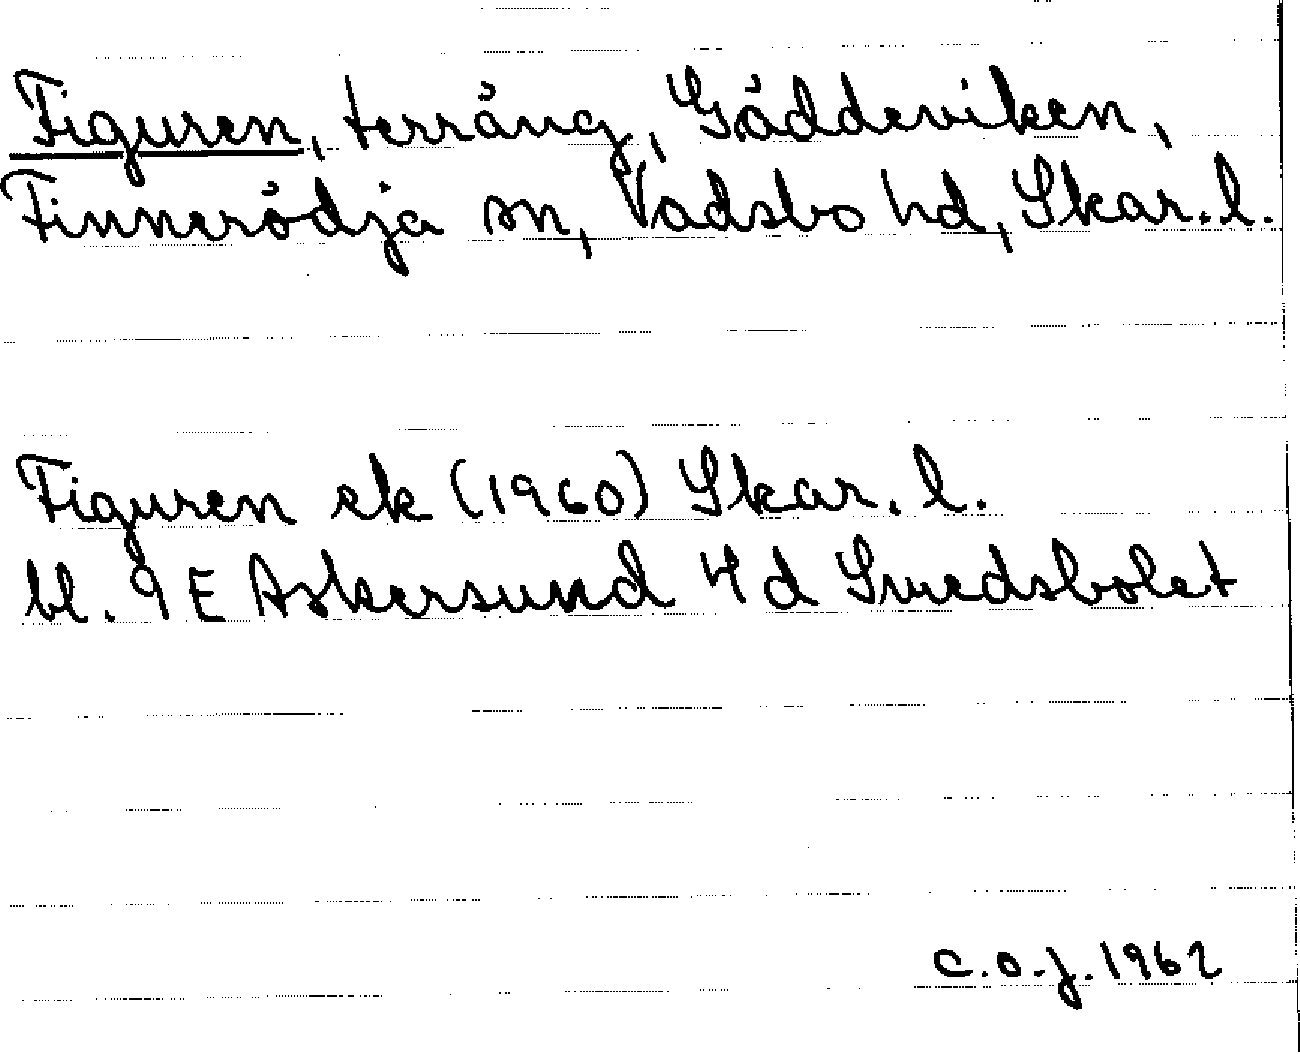 Figuren, terräng, Gäddeviken,
Finnerödja sn, Vadsbo hd, Skar. l.
Figuren ek (1960) Skar. l.
bl. 9E Askersund 4d Smedsbolet
C.O.J. 1962